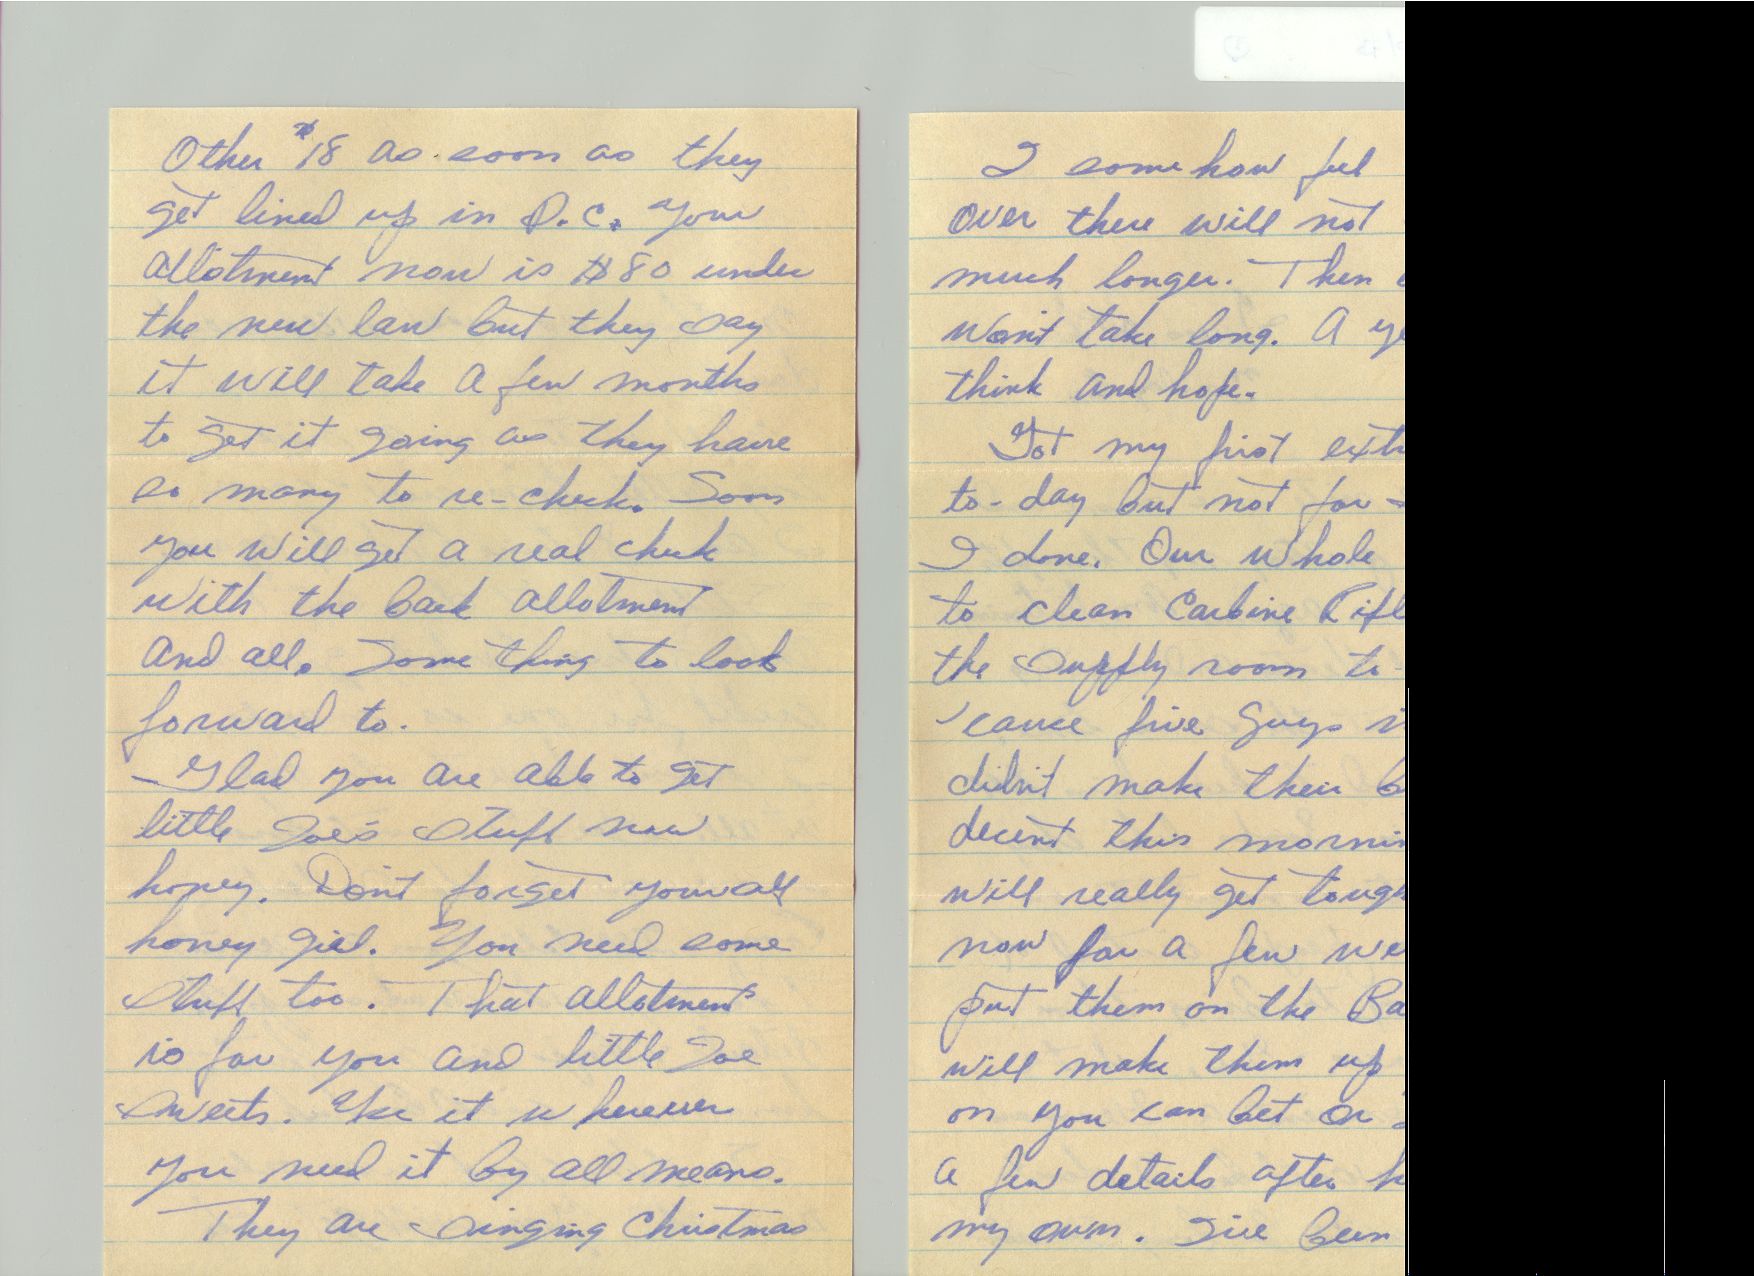 Other $18 as soon as they
get lined up in D.C. Your
allotment now is $80 under
the new law but they say
it will take a few months
to get it going as they have
so many to re-check. Soon
you will get a real check
with the back allotment
and all. Something to look
forward to.
- Glad you are able to get
little Joe's stuff now
honey. Don't forget yourself
honey girl. You need some
stuff too. That allotment
is for you and little Joe
sweets. Use it wherever
you need it by all means.
They are singing Christmas
I some how feel
over there will not
much longer. Then
won't take long. A
think and hope.
Got my first
to-day but not for
I done. Our whole
to clean Carbine
the supply room to-
'cause five guys
didn't make their
decent this
will really get
now for a few
put them on the
will make them up
on you can bet or
a few details after
my own. I've been